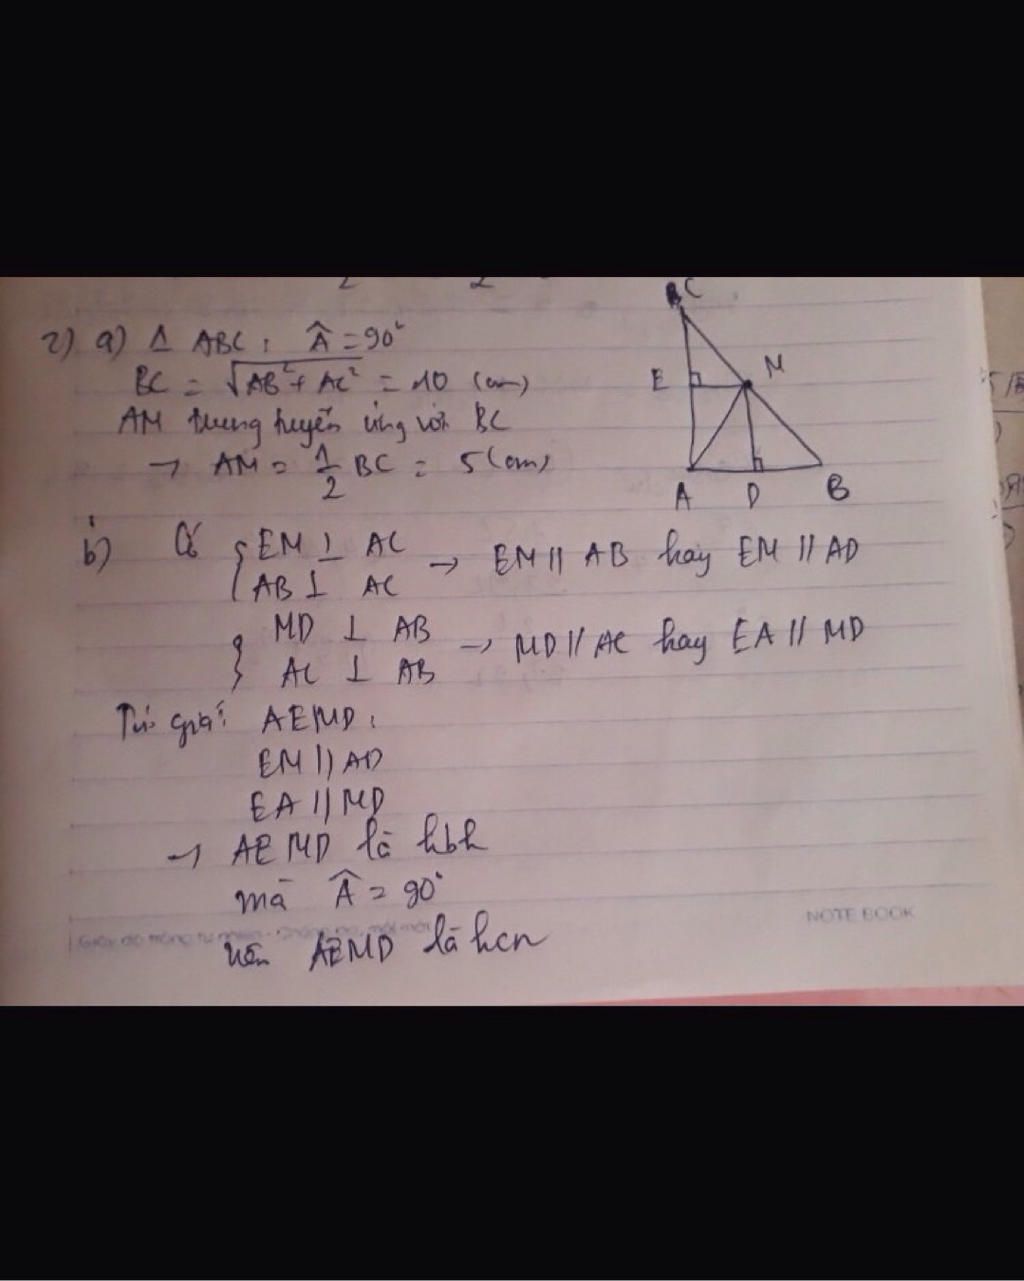 2) a) Δ ABC : Â = 90°
BC = √AB² + AC² = 10 (cm)
AM trung tuyến ứng với BC
→ AM = 1/2 BC = 5 (cm)
b) Có { EM ⊥ AC
AB ⊥ AC → EM // AB hay EM // AD
{ MD ⊥ AB
AC ⊥ AB → MD // AC hay EA // MD
Tứ giác AEMD :
EM // AD
EA // MD
→ AEMD là hbh
mà Â = 90°
nên AEMD là hcn
C
E
M
A
D
B
NOTE BOOK